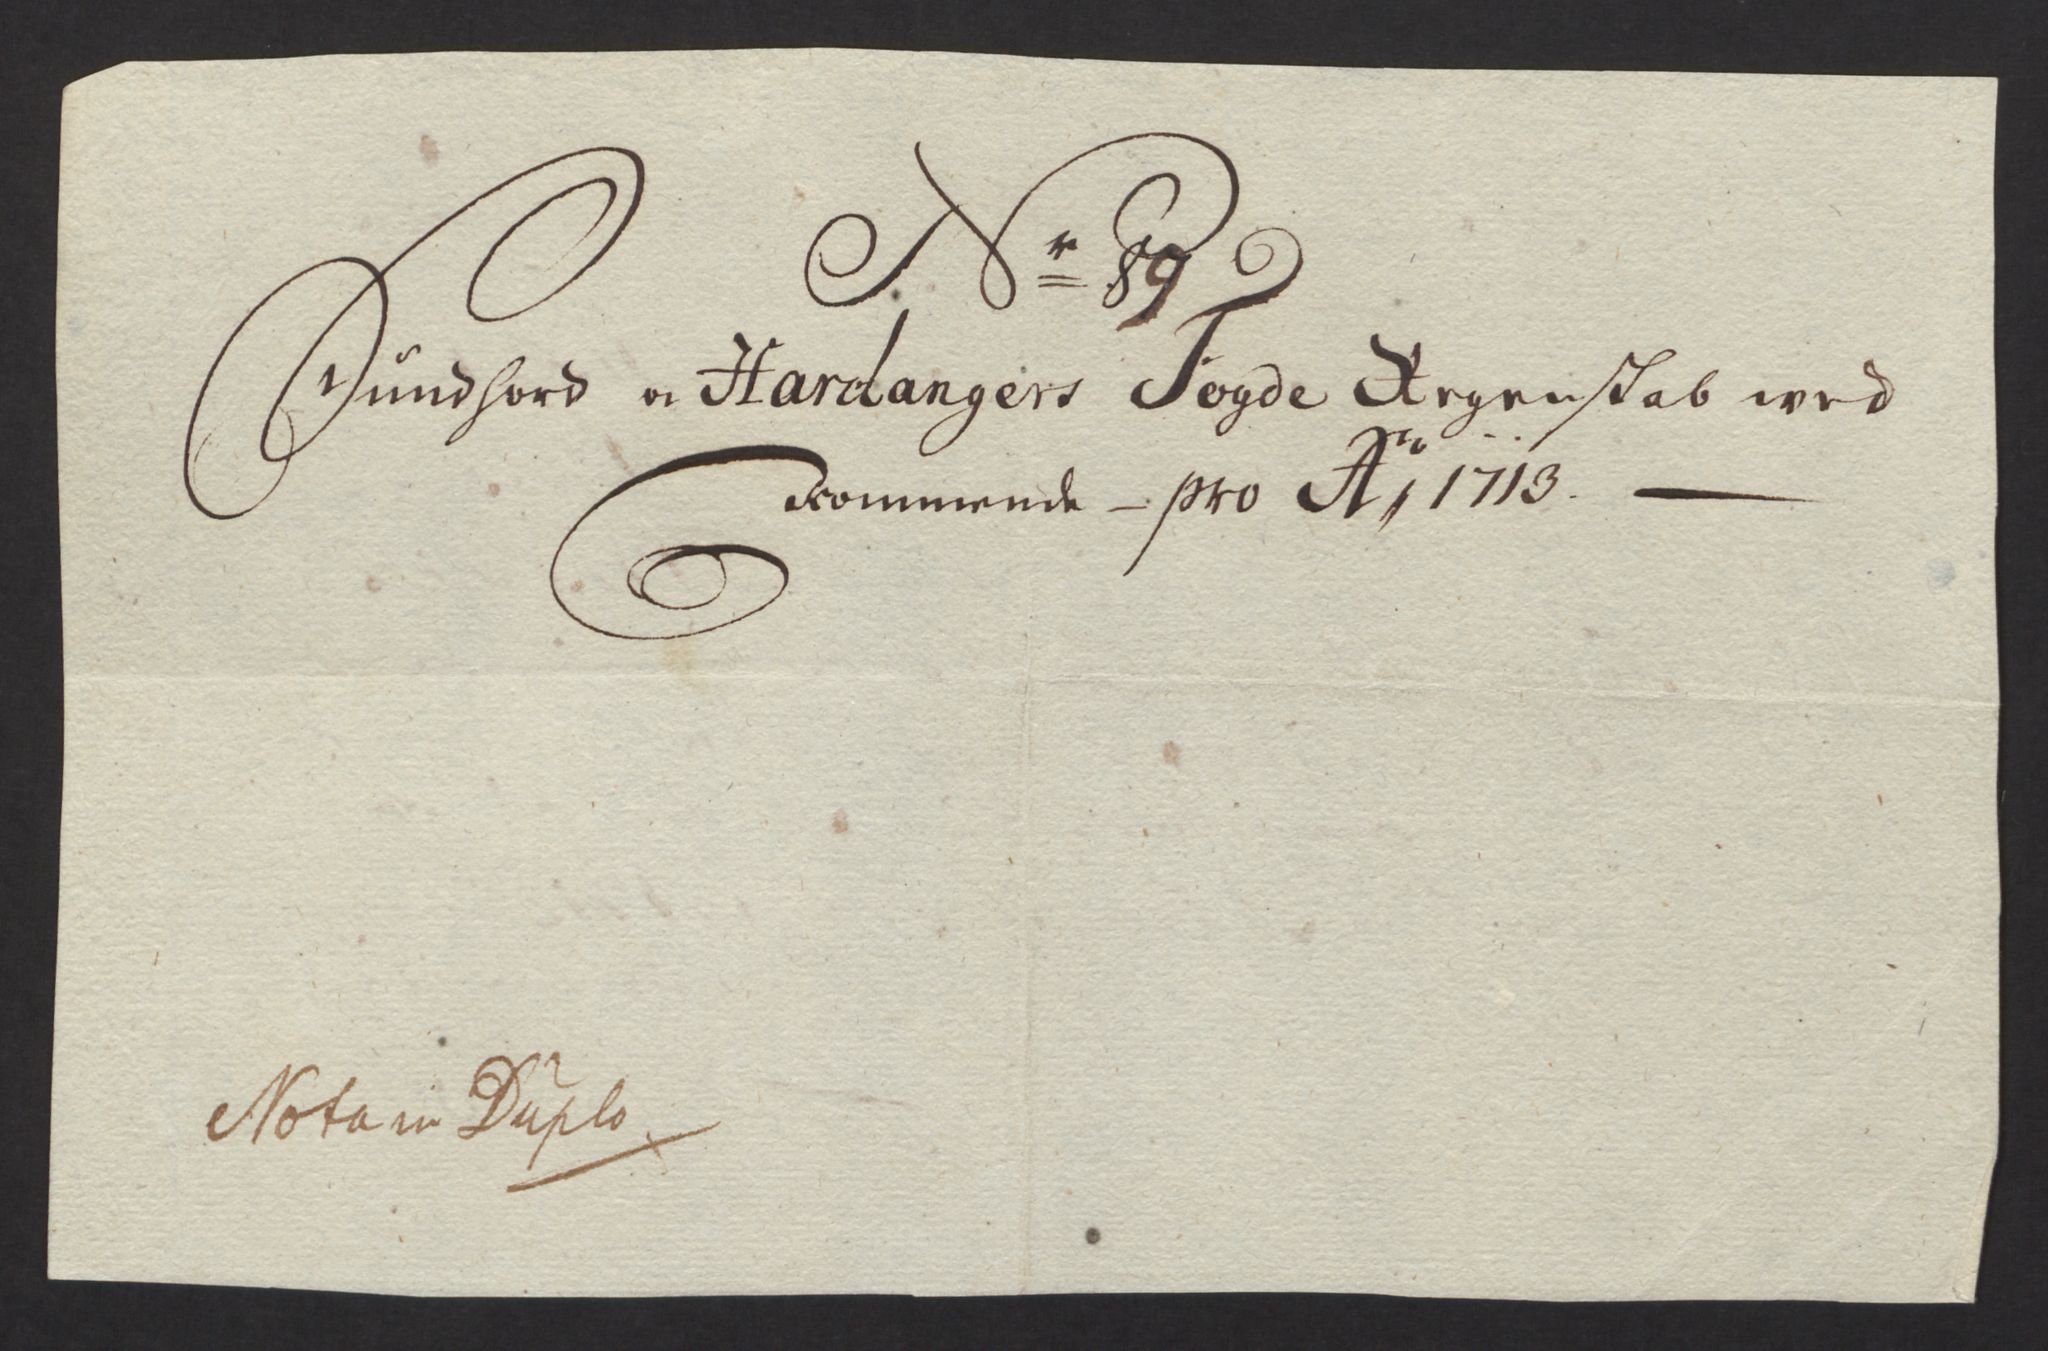 Nr 89
Sundhord oc Hardangers Fogde Regenskab wed
kommende – pro Ao 1713.
Nota in Duplo